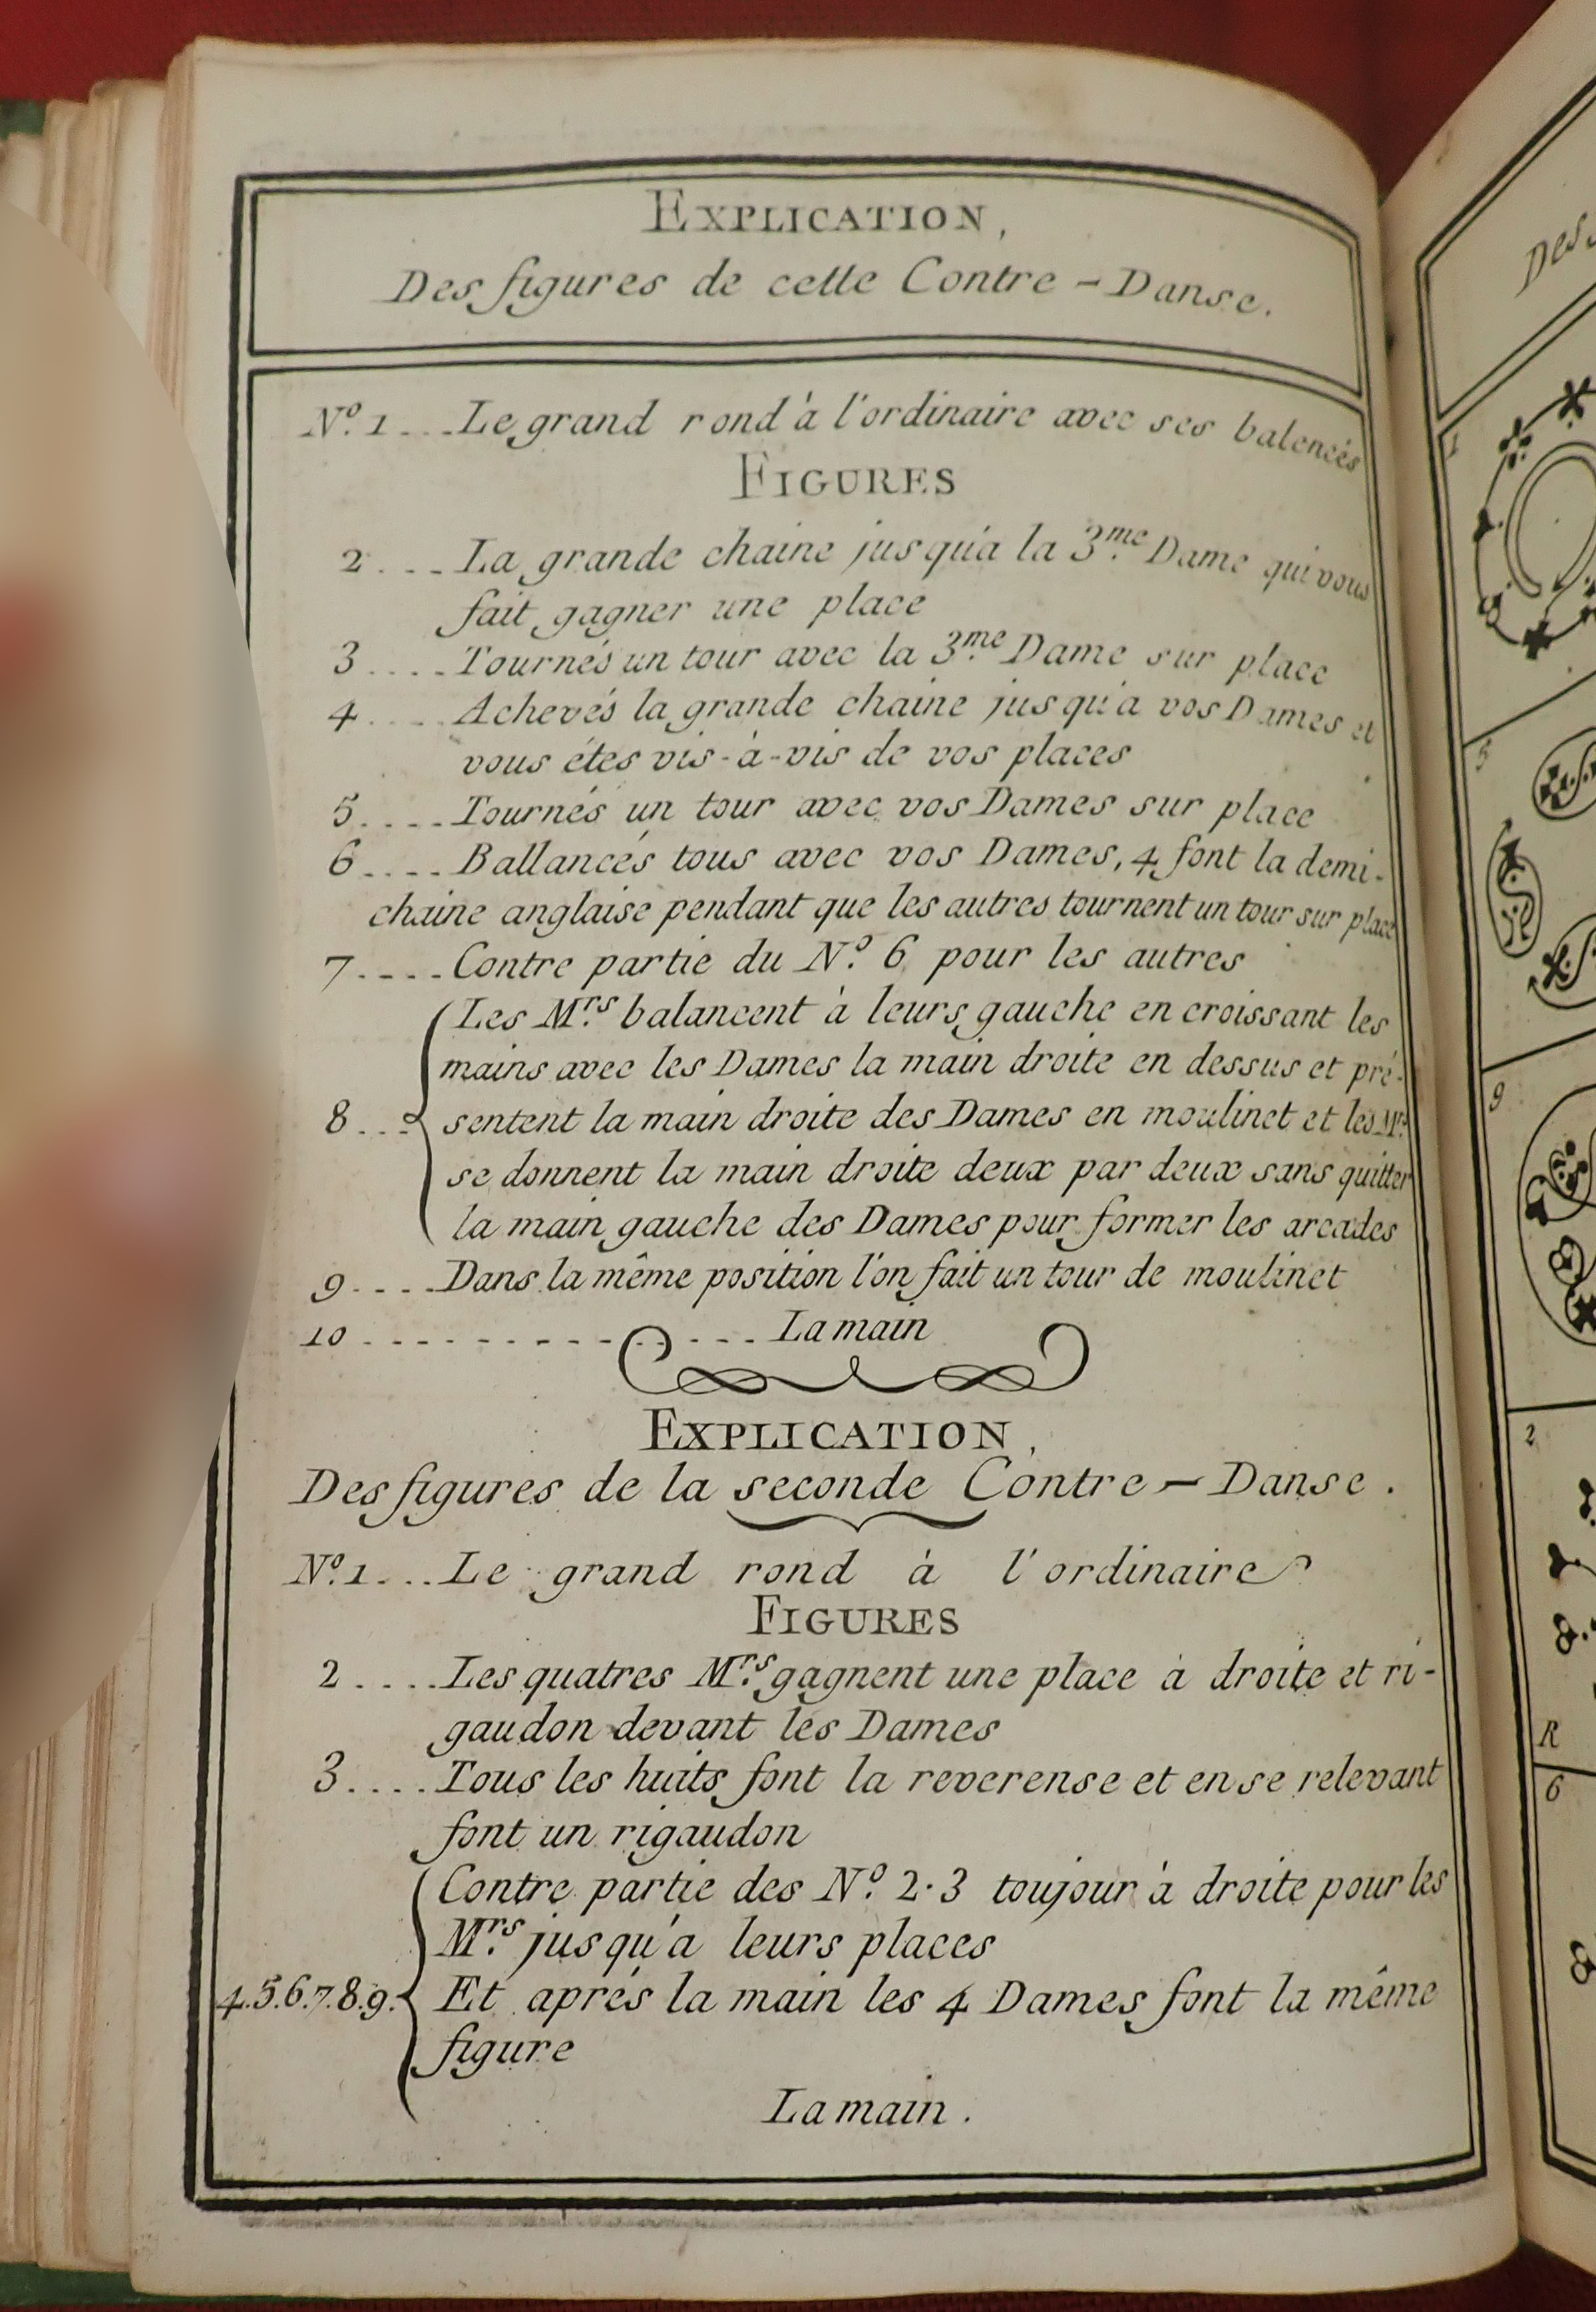 EXPLICATION,
Des figures de cette Contre-Danse.
N.º 1...Le grand rond à l'ordinaire avec ses balencés
FIGURES
2....La grande chaine jusqu'a la 3.me Dame qui vous
fait gagner une place
3....Tournés un tour avec la 3.me Dame sur place
4....Achevés la grande chaine jusqu'a vos Dames et
vous étes vis-à-vis de vos places
5....Tournés un tour avec vos Dames sur place
6....Ballancés tous avec vos Dames, 4 font la demi-
chaine anglaise pendant que les autres tournent un tour sur place
7....Contre partie du N.º 6 pour les autres
Les M.rs balancent à leurs gauche en croissant les
mains avec les Dames la main droite en dessus et pré-
8...sentent la main droite des Dames en moulinet et les M.rs
se donnent la main droite deux par deux sans quitter
la main gauche des Dames pour former les arcades
9....Dans la même position l'on fait un tour de moulinet
10..............La main
EXPLICATION,
Des figures de la seconde Contre-Danse.
N.º 1...Le grand rond à l'ordinaire
FIGURES
2....Les quatres M.rs gagnent une place à droite et ri-
gaudon devant les Dames
3....Tous les huits font la reverense et en se relevant
font un rigaudon
Contre partie des N.º 2.3 toujour à droite pour les
M.rs jusqu'a leurs places
4.5.6.7.8.9. Et aprés la main les 4 Dames font la même
figure
La main.
Des
1
5
9
2
R
6